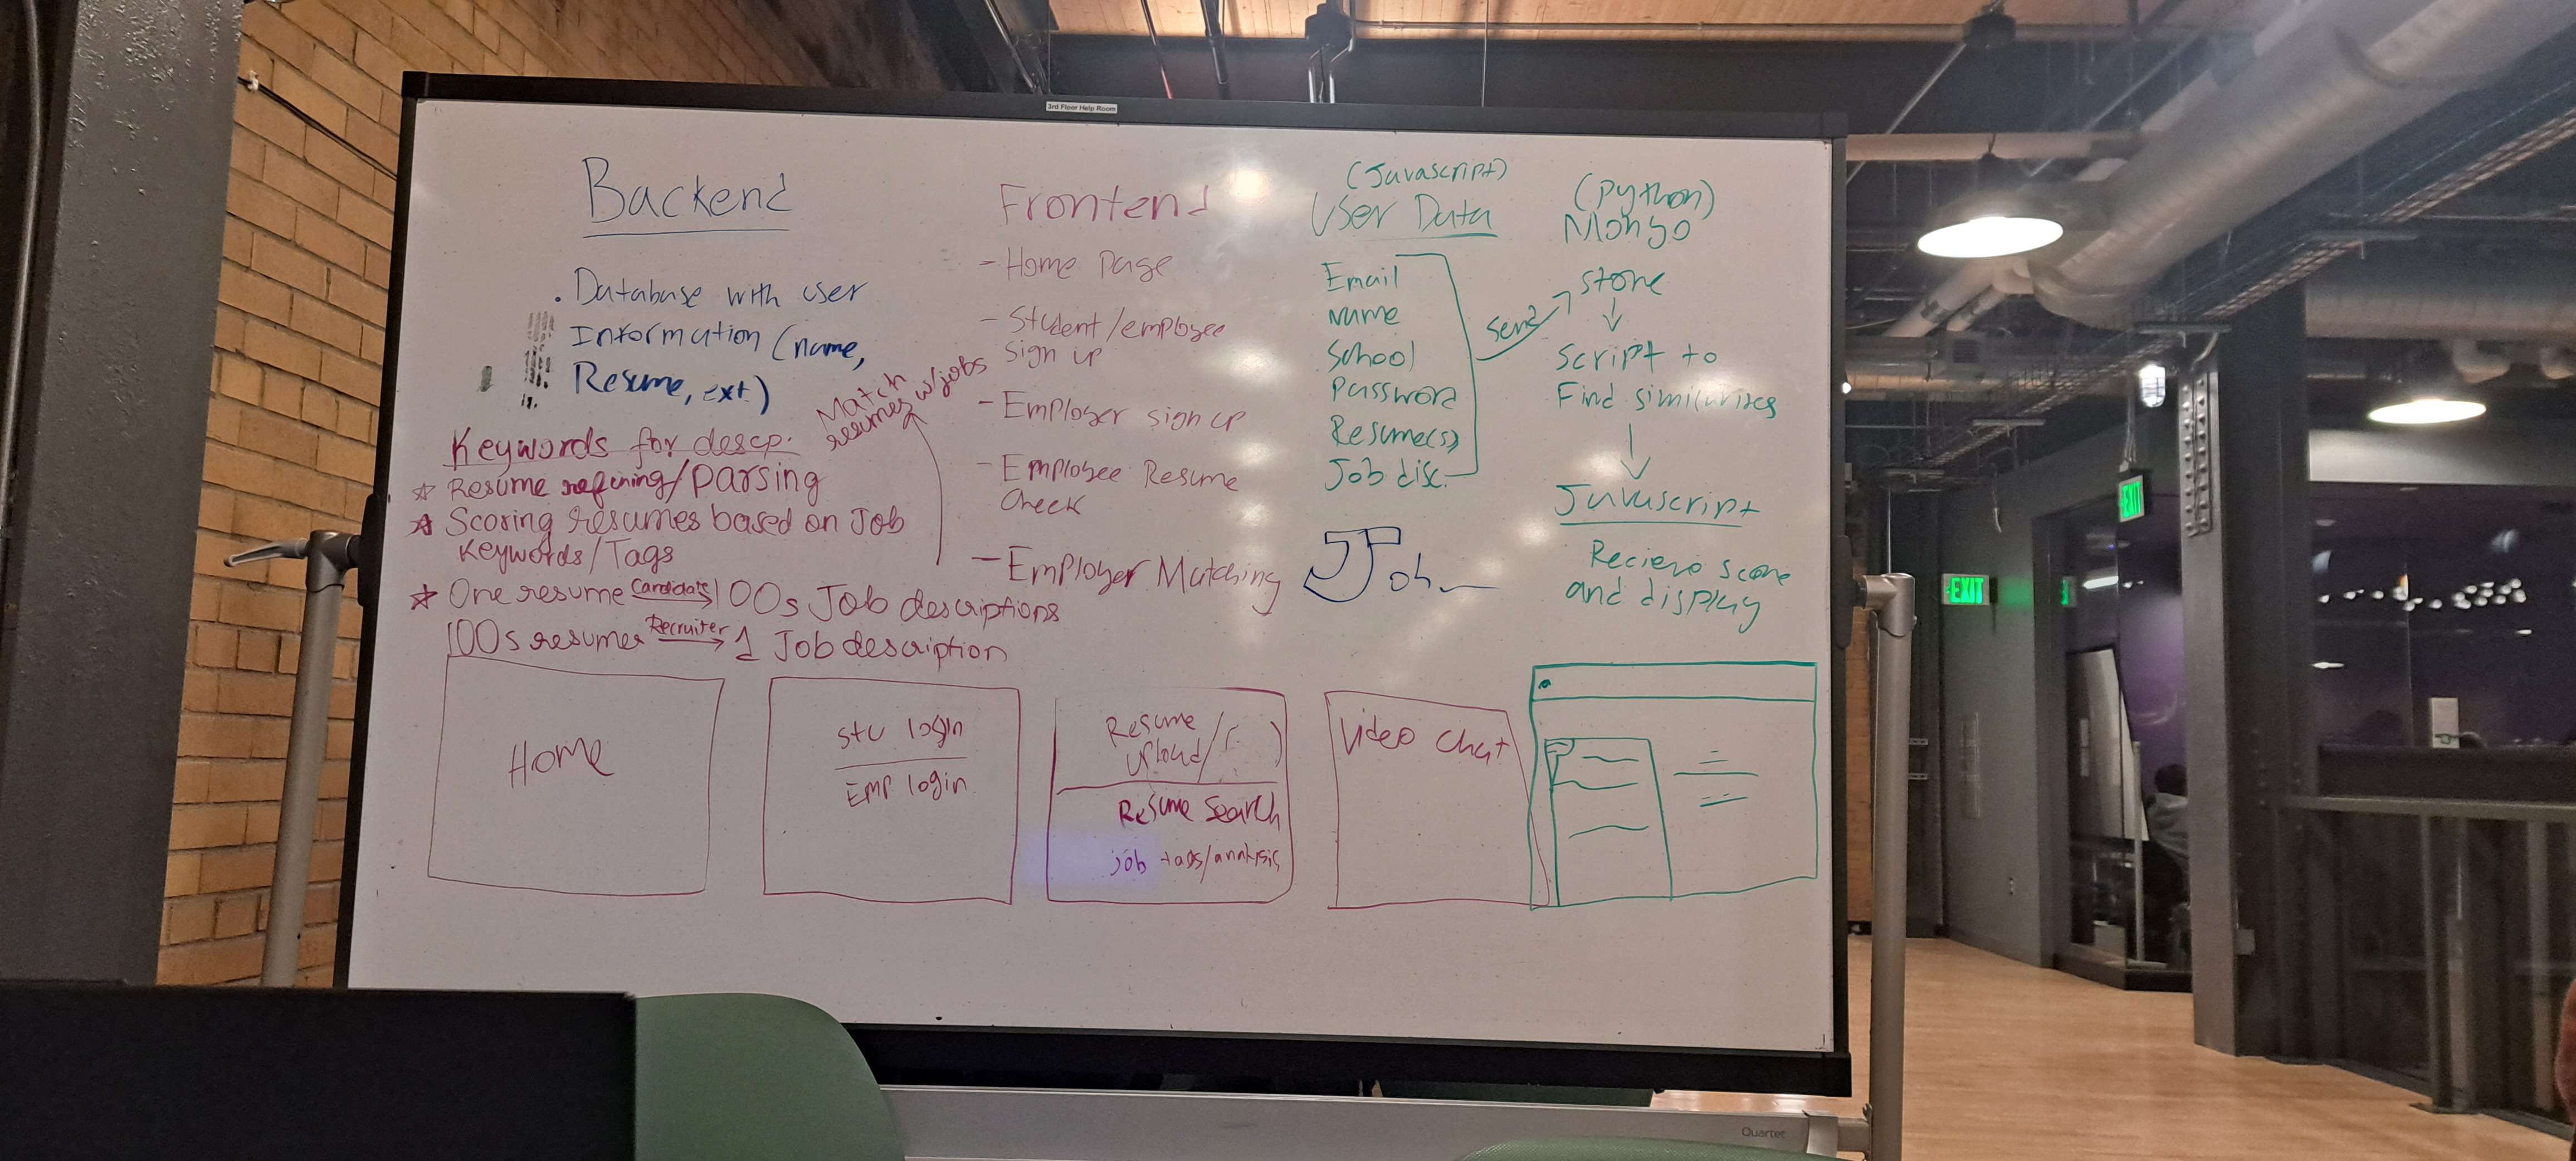 3rd Floor Help Room
Backend
. Database with user
Information (name,
Resume, ext.)
Keywords for descp.
☆ Resume refining/parsing
☆ Scoring resumes based on Job
Keywords/Tags
☆ One resume Candidate 100s Job descriptions
100s resumes Recruiter 1 Job description
Match
resumes w/jobs
Frontend
- Home Page
- Student/employee
sign up
- Employer sign up
- Employee Resume
Check
- Employer Matching
(Javascript)
User Data
Email
name
School
Password
Resume(s)
Job disc.
send
(python)
Mongo
store
script to
Find similarities
Javascript
Recieve score
and display
Home
stu login
Emp login
Resume
upload/
Resume Search
job tags/analysis
Video Chat
EXIT
EXIT
Quartet